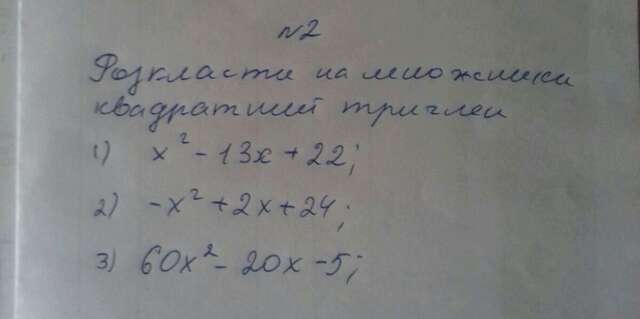 №2
Розкласти на множники
квадратний тричлен
1) x² - 13x + 22;
2) -x² + 2x + 24;
3) 60x² - 20x - 5;